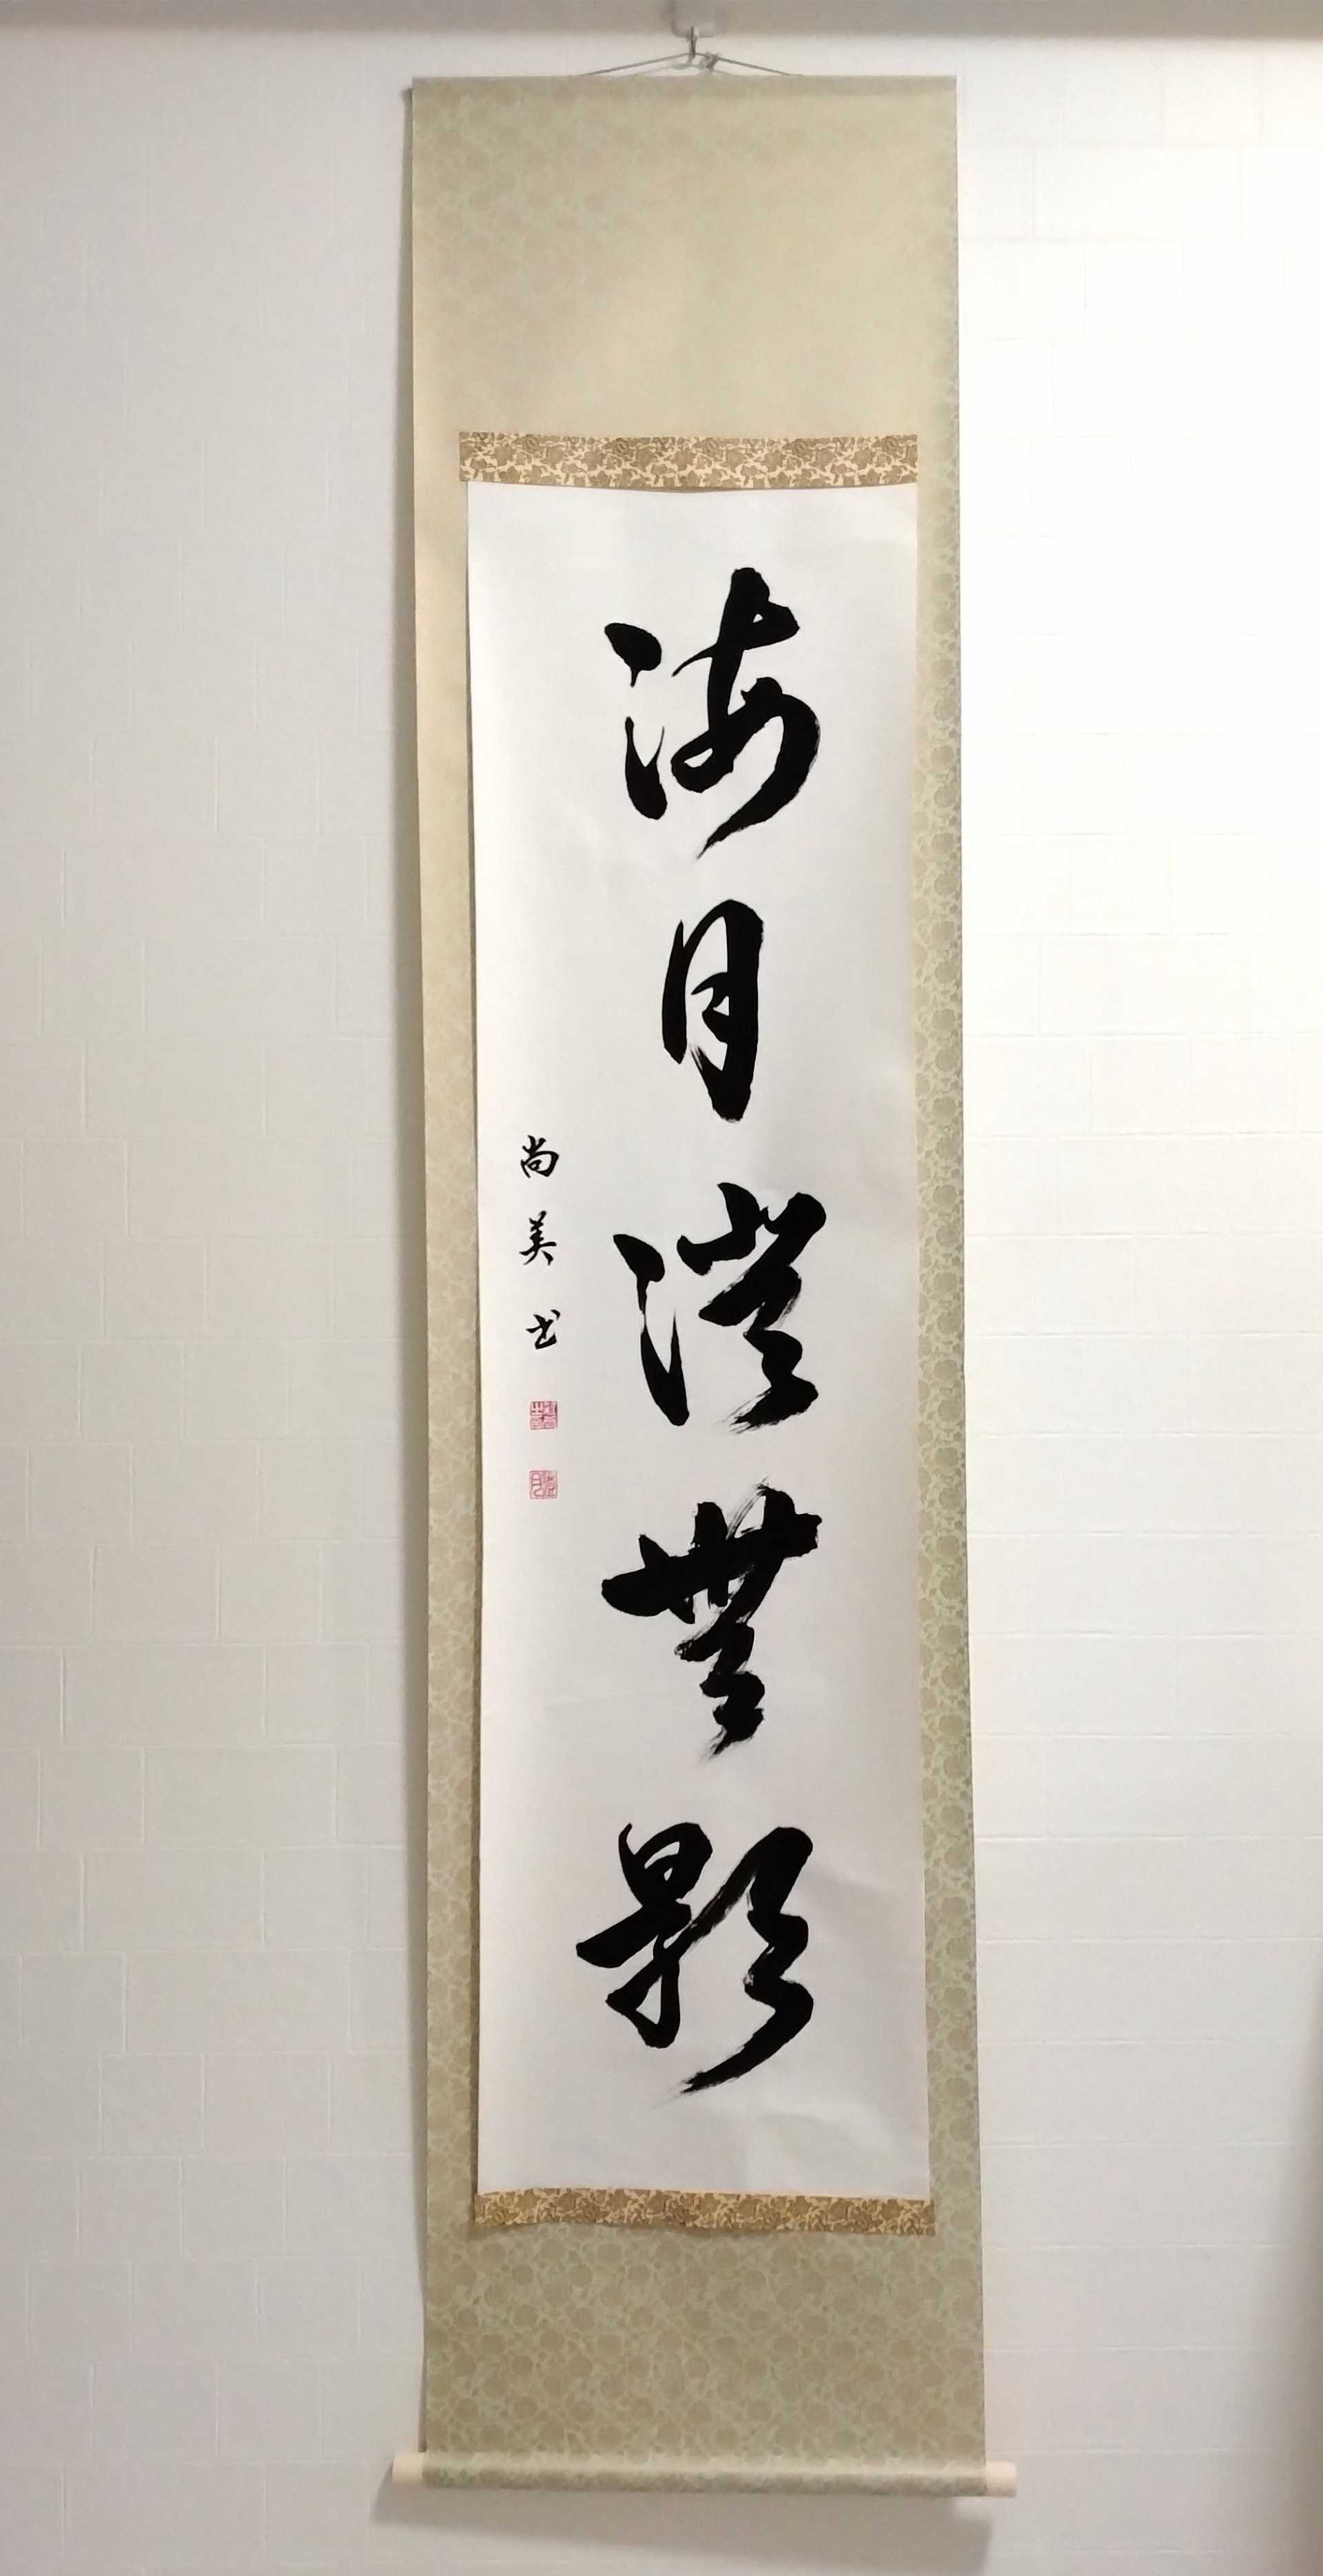 海月澄無影
尚美書